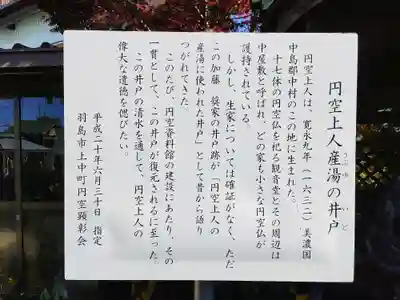 円空上人産湯の井戸
うぶゆ
いど
円空上人は、寛永九年（一六三二）美濃国
中島郡中村のこの地に生まれた。
十七体の円空仏を祀る観音堂とその周辺は
中屋敷と呼ばれ、どの家も小さな円空仏が
護持されている。
しかし、生家については確証がなく、ただ
この加藤 奨家の井戸跡が「円空上人の
産湯に使われた井戸」として昔から語り
つがれてきた。
このたび、円空資料館の建設にあたり、その
一貫として、この井戸が復元されるに至った。
この井戸の清水を通して、円空上人の
偉大な遺徳を偲びたい。
平成二十年六月三十日 指定
羽島市上中町円空顕彰会